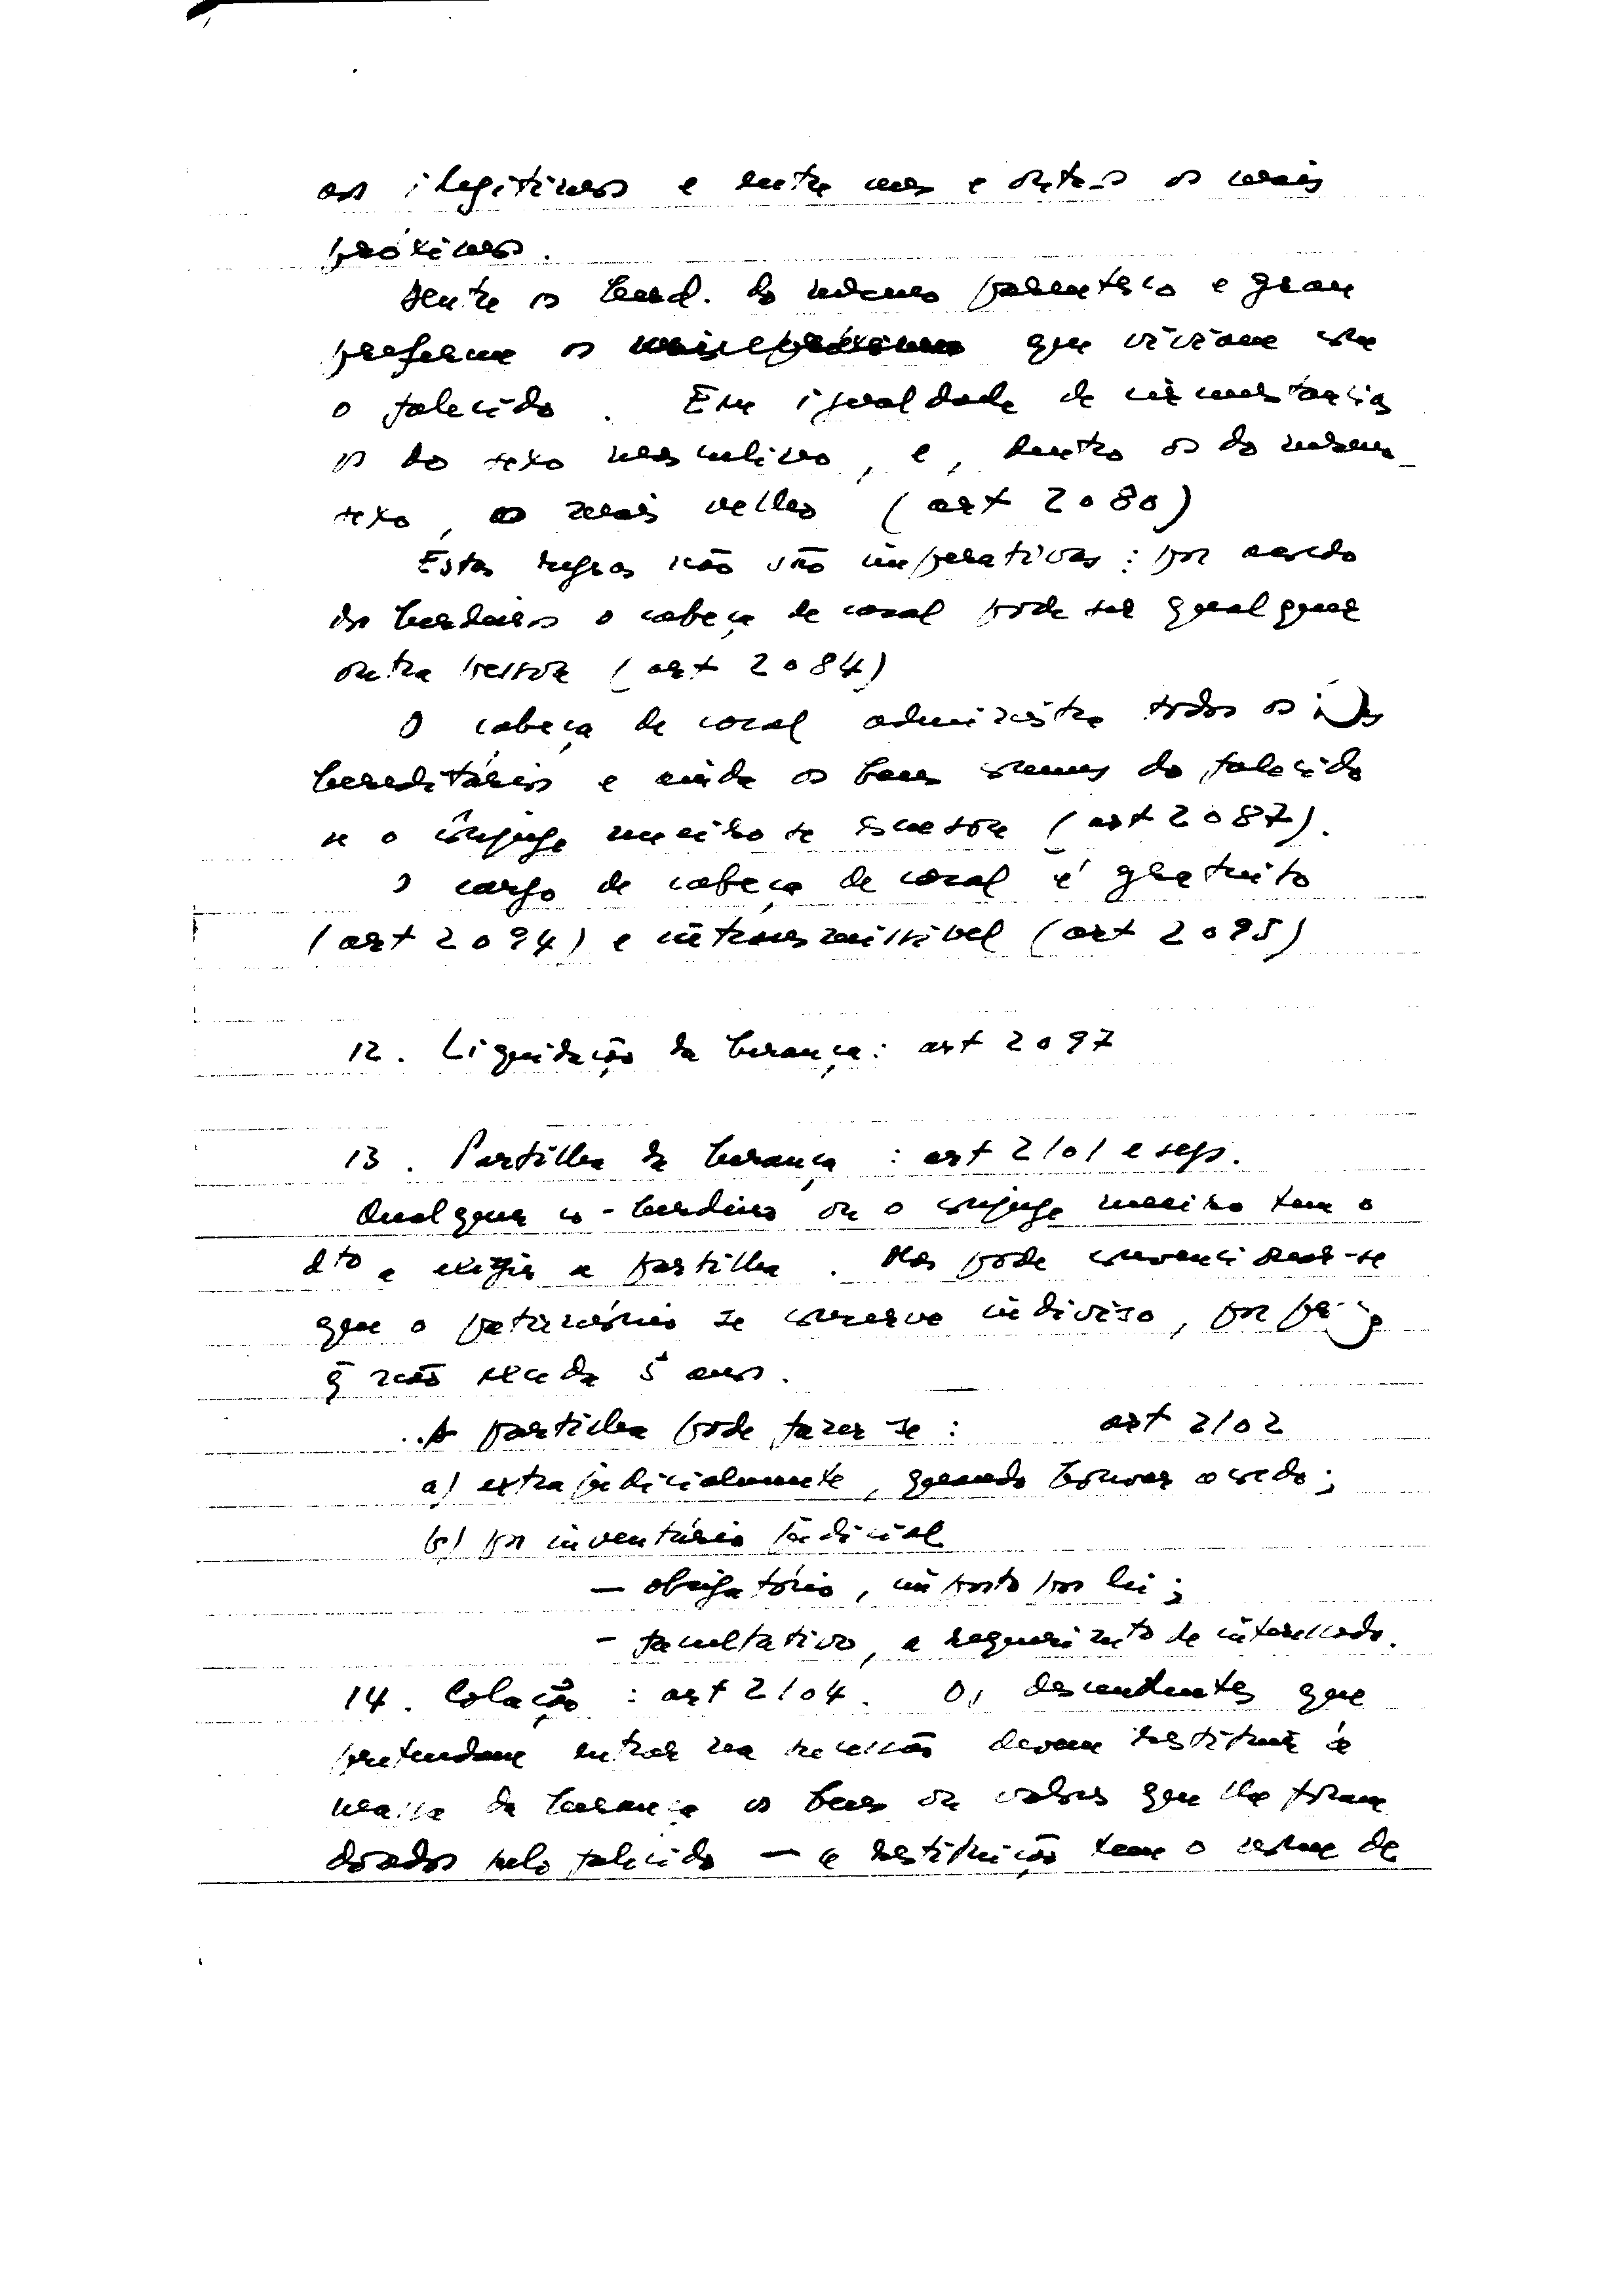 aos ilegítimos e entre uns e outros os mais
próximos.
Dentre os herd. do mesmo parentesco e grau
preferem os que viviam com
o falecido. Em igualdade de circunstancias
os do sexo masculino, e, dentro os do mesmo
sexo, os mais velhos (art 2080)
Estas regras não são imperativas: por acordo
dos herdeiros o cabeça de casal pode ser qualquer
outra pessoa (art 2084)
O cabeça de casal administra todos os
hereditários e ainda os bens comuns do falecido
se o cônjuge meeiro se (art 2087).
O cargo de cabeça de casal é gratuito
(art 2094) e intransmissível (art 2095)
12. Liquidação da herança: art 2097
13. Partilha da herança : art 2101 e segs.
Qualquer co-herdeiro ou o conjuge meeiro tem o
dto a exigir a partilha. Mas pode convencionar-se
que o património se conserve indiviso, por
q̄ não exceda 5 anos.
A partilha pode fazer-se : art 2102
a) extrajudicialmente, quando houver acordo;
b) por inventário judicial
— obrigatório, imposto por lei;
- facultativo, a requerimento de interessado.
14. Colação : art 2104. Os descendentes que
pretendam entrar na sucessão devem restituir à
massa da herança os bens ou valores que lhe foram
doados pelo falecido — a restituição tem o nome de